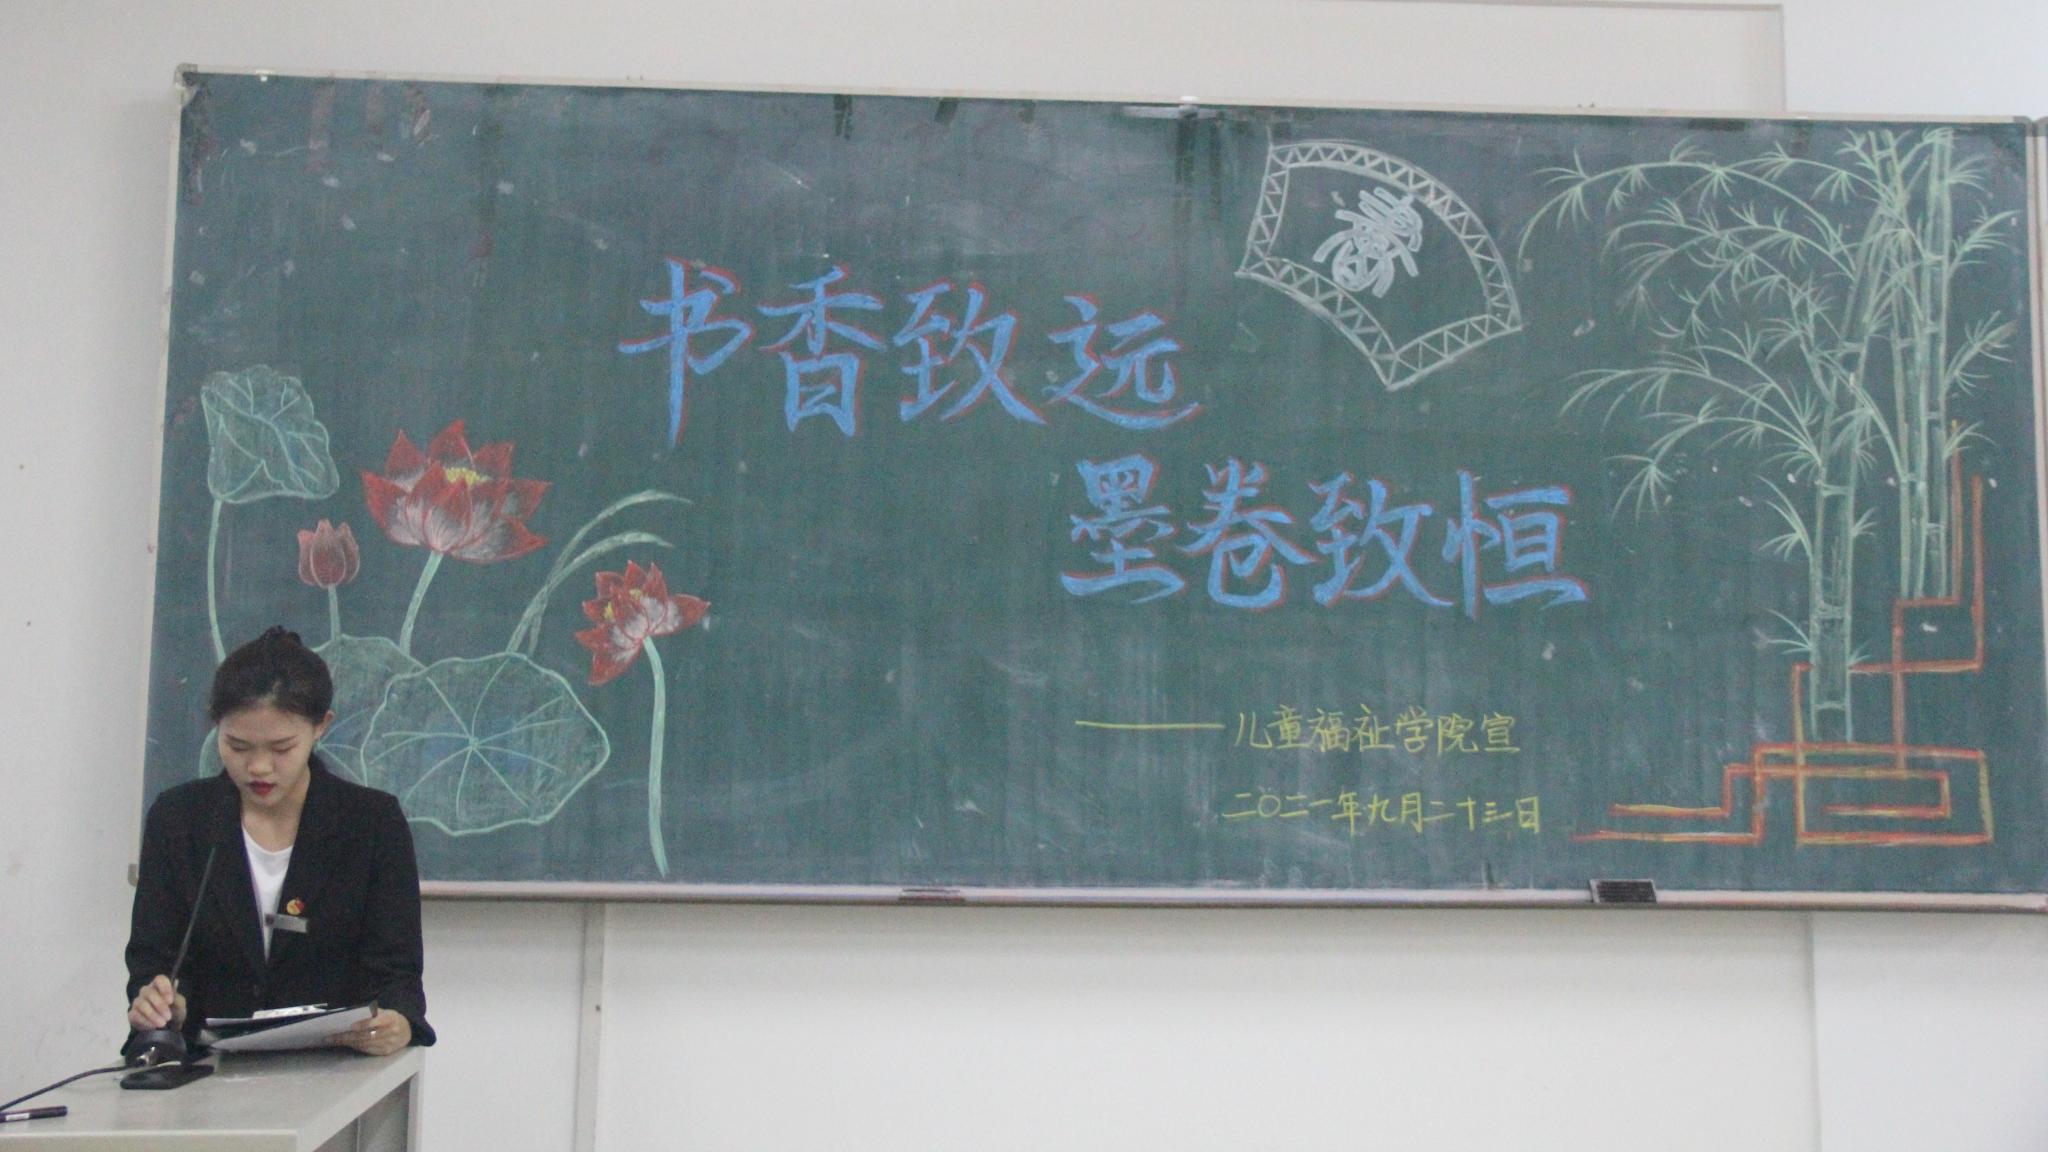 书香致远
墨卷致恒
——儿童福祉学院宣
二〇二一年九月二十三日